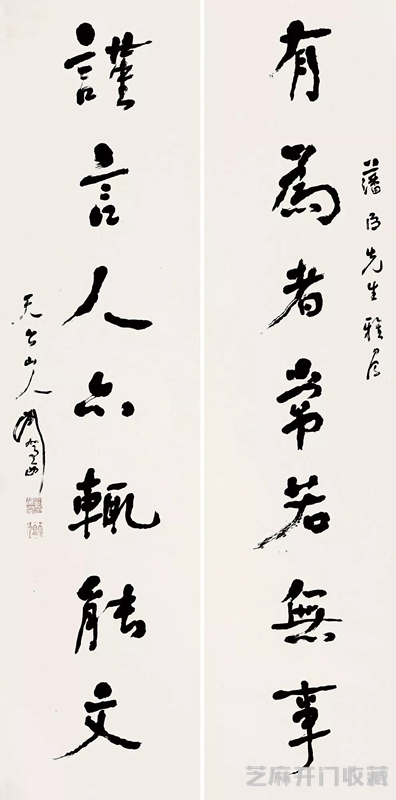 藩侯先生雅屬
有為者常若無事
謹言人亦輒能文
天台山人
芝麻开门收藏